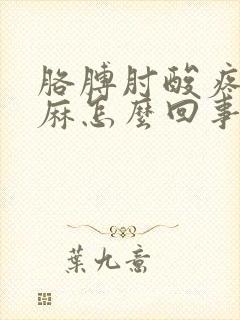 胳膊肘酸疼
麻怎麼回事
葉九意